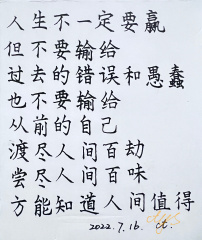 人生不一定要赢
但不要输给
过去的错误和愚蠢
也不要输给
从前的自己
渡尽人间百劫
尝尽人间百味
方能知道人间值得
2022.7.16. ct.